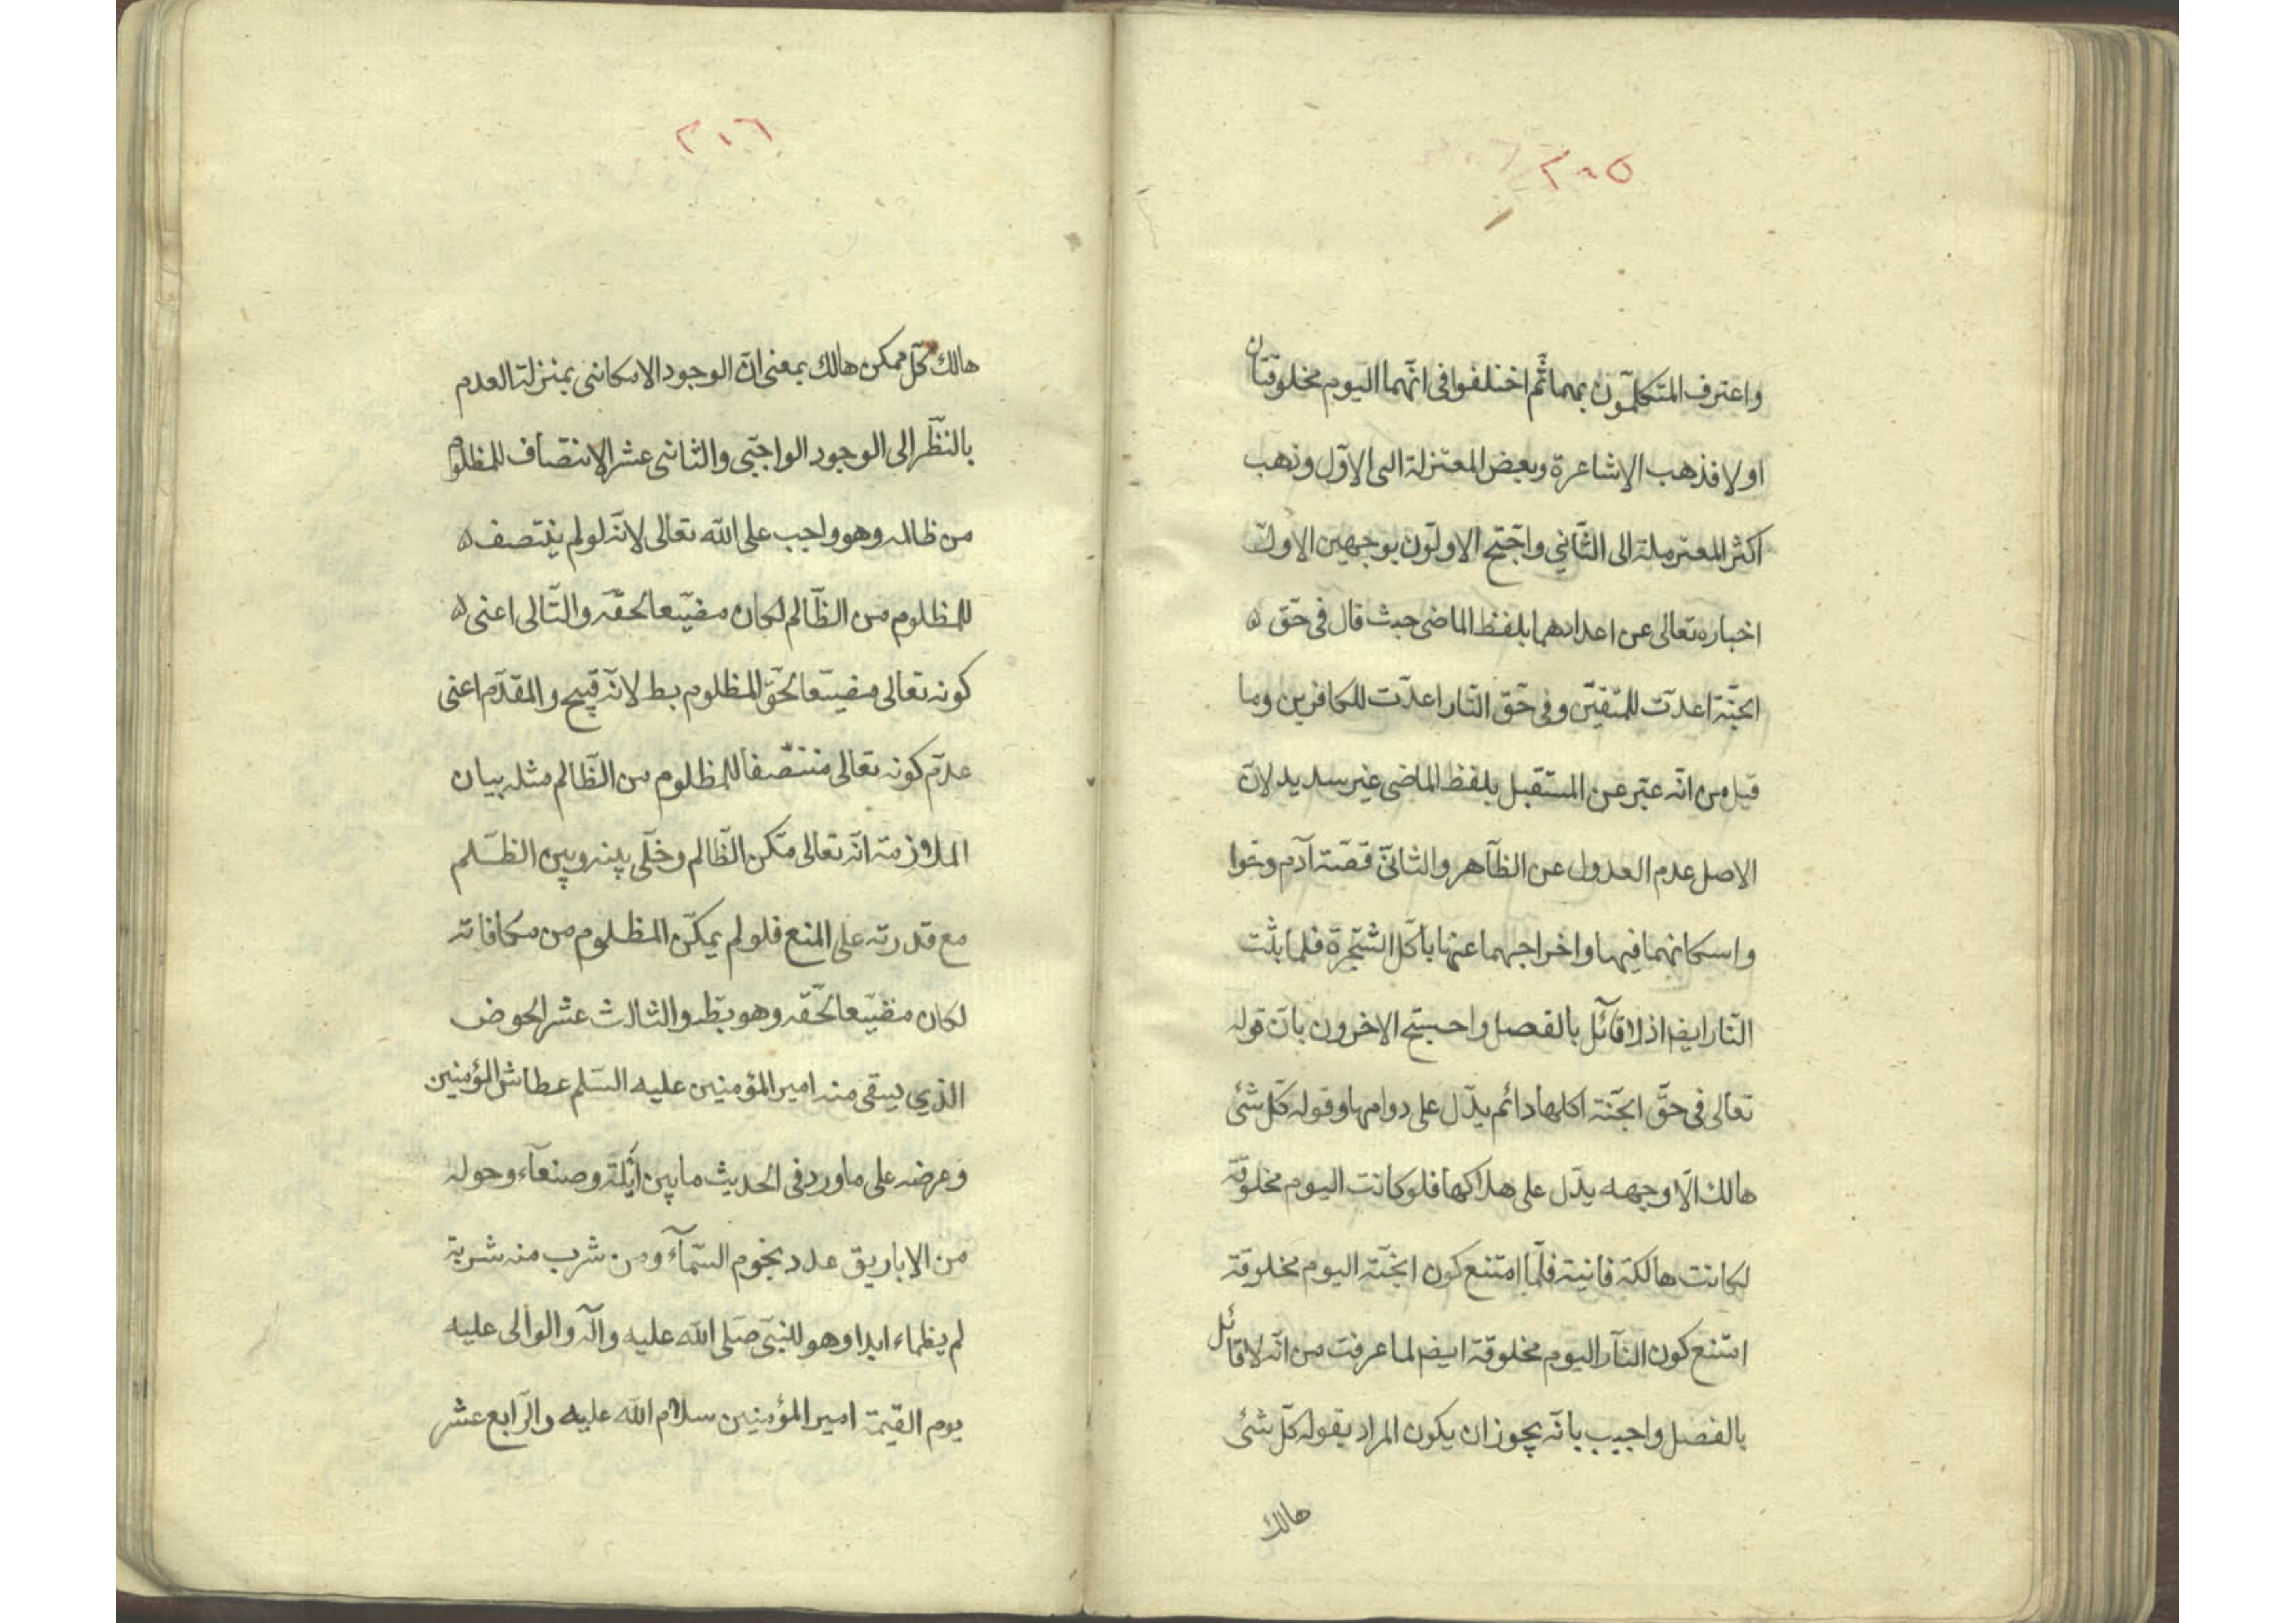 ٢١٥
واعترف المتكلّمون بهما ثمّ اختلفوا فى انّهما اليوم مخلوقتان
او لا فذهب الاشاعرة وبعض المعتزلة الى الاوّل وذهب
اكثر المعتزلة الى الثّاني واحتّج الاولّون بوجهين الاولّ
اخباره تعالى عن اعدادهما بلفظ الماضى حيث قال فى حّق
الجنّة اعدّت للمتّقين وفى حّق النّار اعدّت للكافرين وما
قيل من انّه عبّر عن المستقبل بلفظ الماضى غير سديد لانّ
الاصل عدم العدول عن الظّاهر والثانىّ قصّة آدم وحوا
واسكانهما فيها واخراجهما عنها باكل الشّجرة فلما بثّت
النّار ايضا اذ لا قائل بالفصل واحتبّح الاخرون بانّ قوله
تعالى فى حقّ الجنّة اكلها دائم يدّل على دوامها وقوله كّل شئ
هالك الّا وجهه يدّل على هلاكها فلو كانت اليوم مخلوقة
لكانت هالكة فانية فلّما امتنع كون الجنّة اليوم مخلوقة
امتنع كون النّار اليوم مخلوقة ايضا لما عرفت من انّه لا قائل
بالفصل واجيب بانّه يجوز ان يكون المراد بقوله كلّ شئ
هالك
٢١٦
هالك كلّ ممكن هالك بمعنى انّ الوجود الامكانى بمنزلة العدم
بالنّظر الى الوجود الواجبّى والثانى عشر الانتصاف للمظلوم
من ظالمه وهو واجب على الله تعالى لانّه لو لم ينتصف
للمظلوم من الظّالم لكان مضيّعا لحقّه والتّالى اعنى
كونه تعالى مضيّعا لحقّ المظلوم بط لانّه قبيح والمقدّم اعنى
عدم كونه تعالى منتصّفا للمظلوم من الظّالم مثله بيان
الملازمة انّه تعالى مّكن الظّالم وخلّى بينه وبين الظّلم
مع قدرته على المنع فلو لم يمكّن المظلوم من مكافاته
لكان مضيّعا لحّقه وهو بطّ والثالث عشر الحوض
الذي يسقى منه امير المؤمنين عليه السّلم عطاش المؤمنين
وعرضه على ما ورد فى الحديث ما بين ايلة وصنعآء وحوله
من الاباريق عدد نجوم السّمآء ومن شرب منه شربة
لم يظماء ابدا وهو للنبىّ صّلى الله عليه وآله والوالى عليه
يوم القيمة امير المؤمنين سلام الله عليه والرّابع عشر